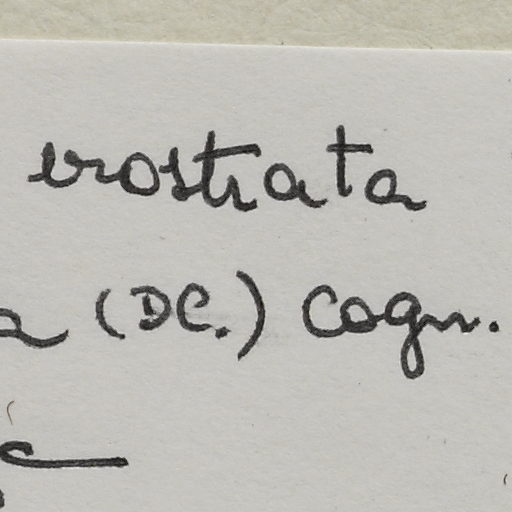 rostrata
a (DC.) Cogn.